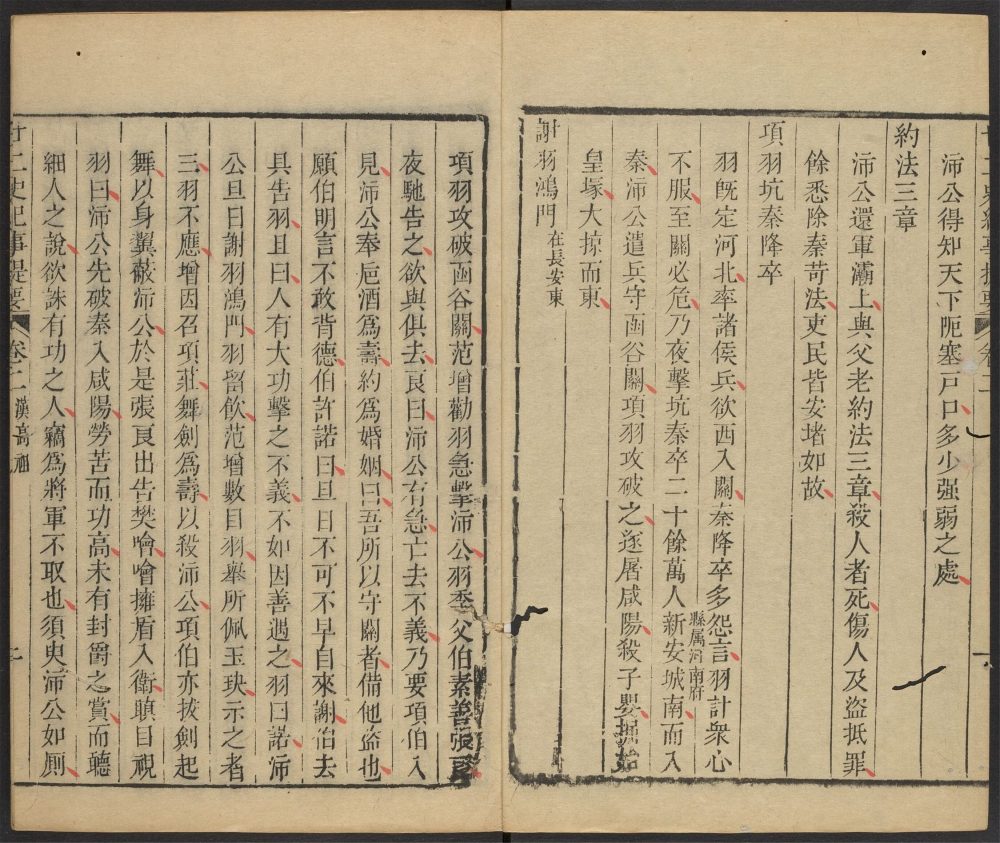 沛公得知天下阨塞戸口多少强弱之處
約法三章
沛公還軍灞上與父老約法三章殺人者死傷人及盜抵罪
餘悉除秦苛法吏民皆安堵如故
項羽坑秦降卒
羽旣定河北率諸侯兵欲西入關秦降卒多怨言羽計衆心
不服至關必危乃夜擊坑秦卒二十餘萬人新安城南縣属河南府而入
秦沛公遣兵守函谷關項羽攻破之遂屠咸陽殺子嬰掘始
皇塚大掠而東
謝羽鴻門在長安東
項羽攻破函谷關范增勸羽急擊沛公羽季父伯素善張良
夜馳告之欲與俱去良曰沛公有急亡去不義乃要項伯入
見沛公奉巵酒爲壽約爲婚姻曰吾所以守關者備他盜也
願伯明言不敢背德伯許諾曰旦日不可不早自來謝伯去
具告羽且曰人有大功擊之不義不如因善遇之羽曰諾沛
公旦日謝羽鴻門羽留飮范增數目羽舉所佩玉玦示之者
三羽不應增因召項莊舞劍爲壽以殺沛公項伯亦拔劍起
舞以身翼蔽沛公於是張良出告樊噲噲擁盾入衛瞋目視
羽曰沛公先破秦入咸陽勞苦而功高未有封爵之賞而聽
細人之說欲誅有功之人竊爲將軍不取也須臾沛公如厠
廿二史紀事提要 卷二 漢高祖